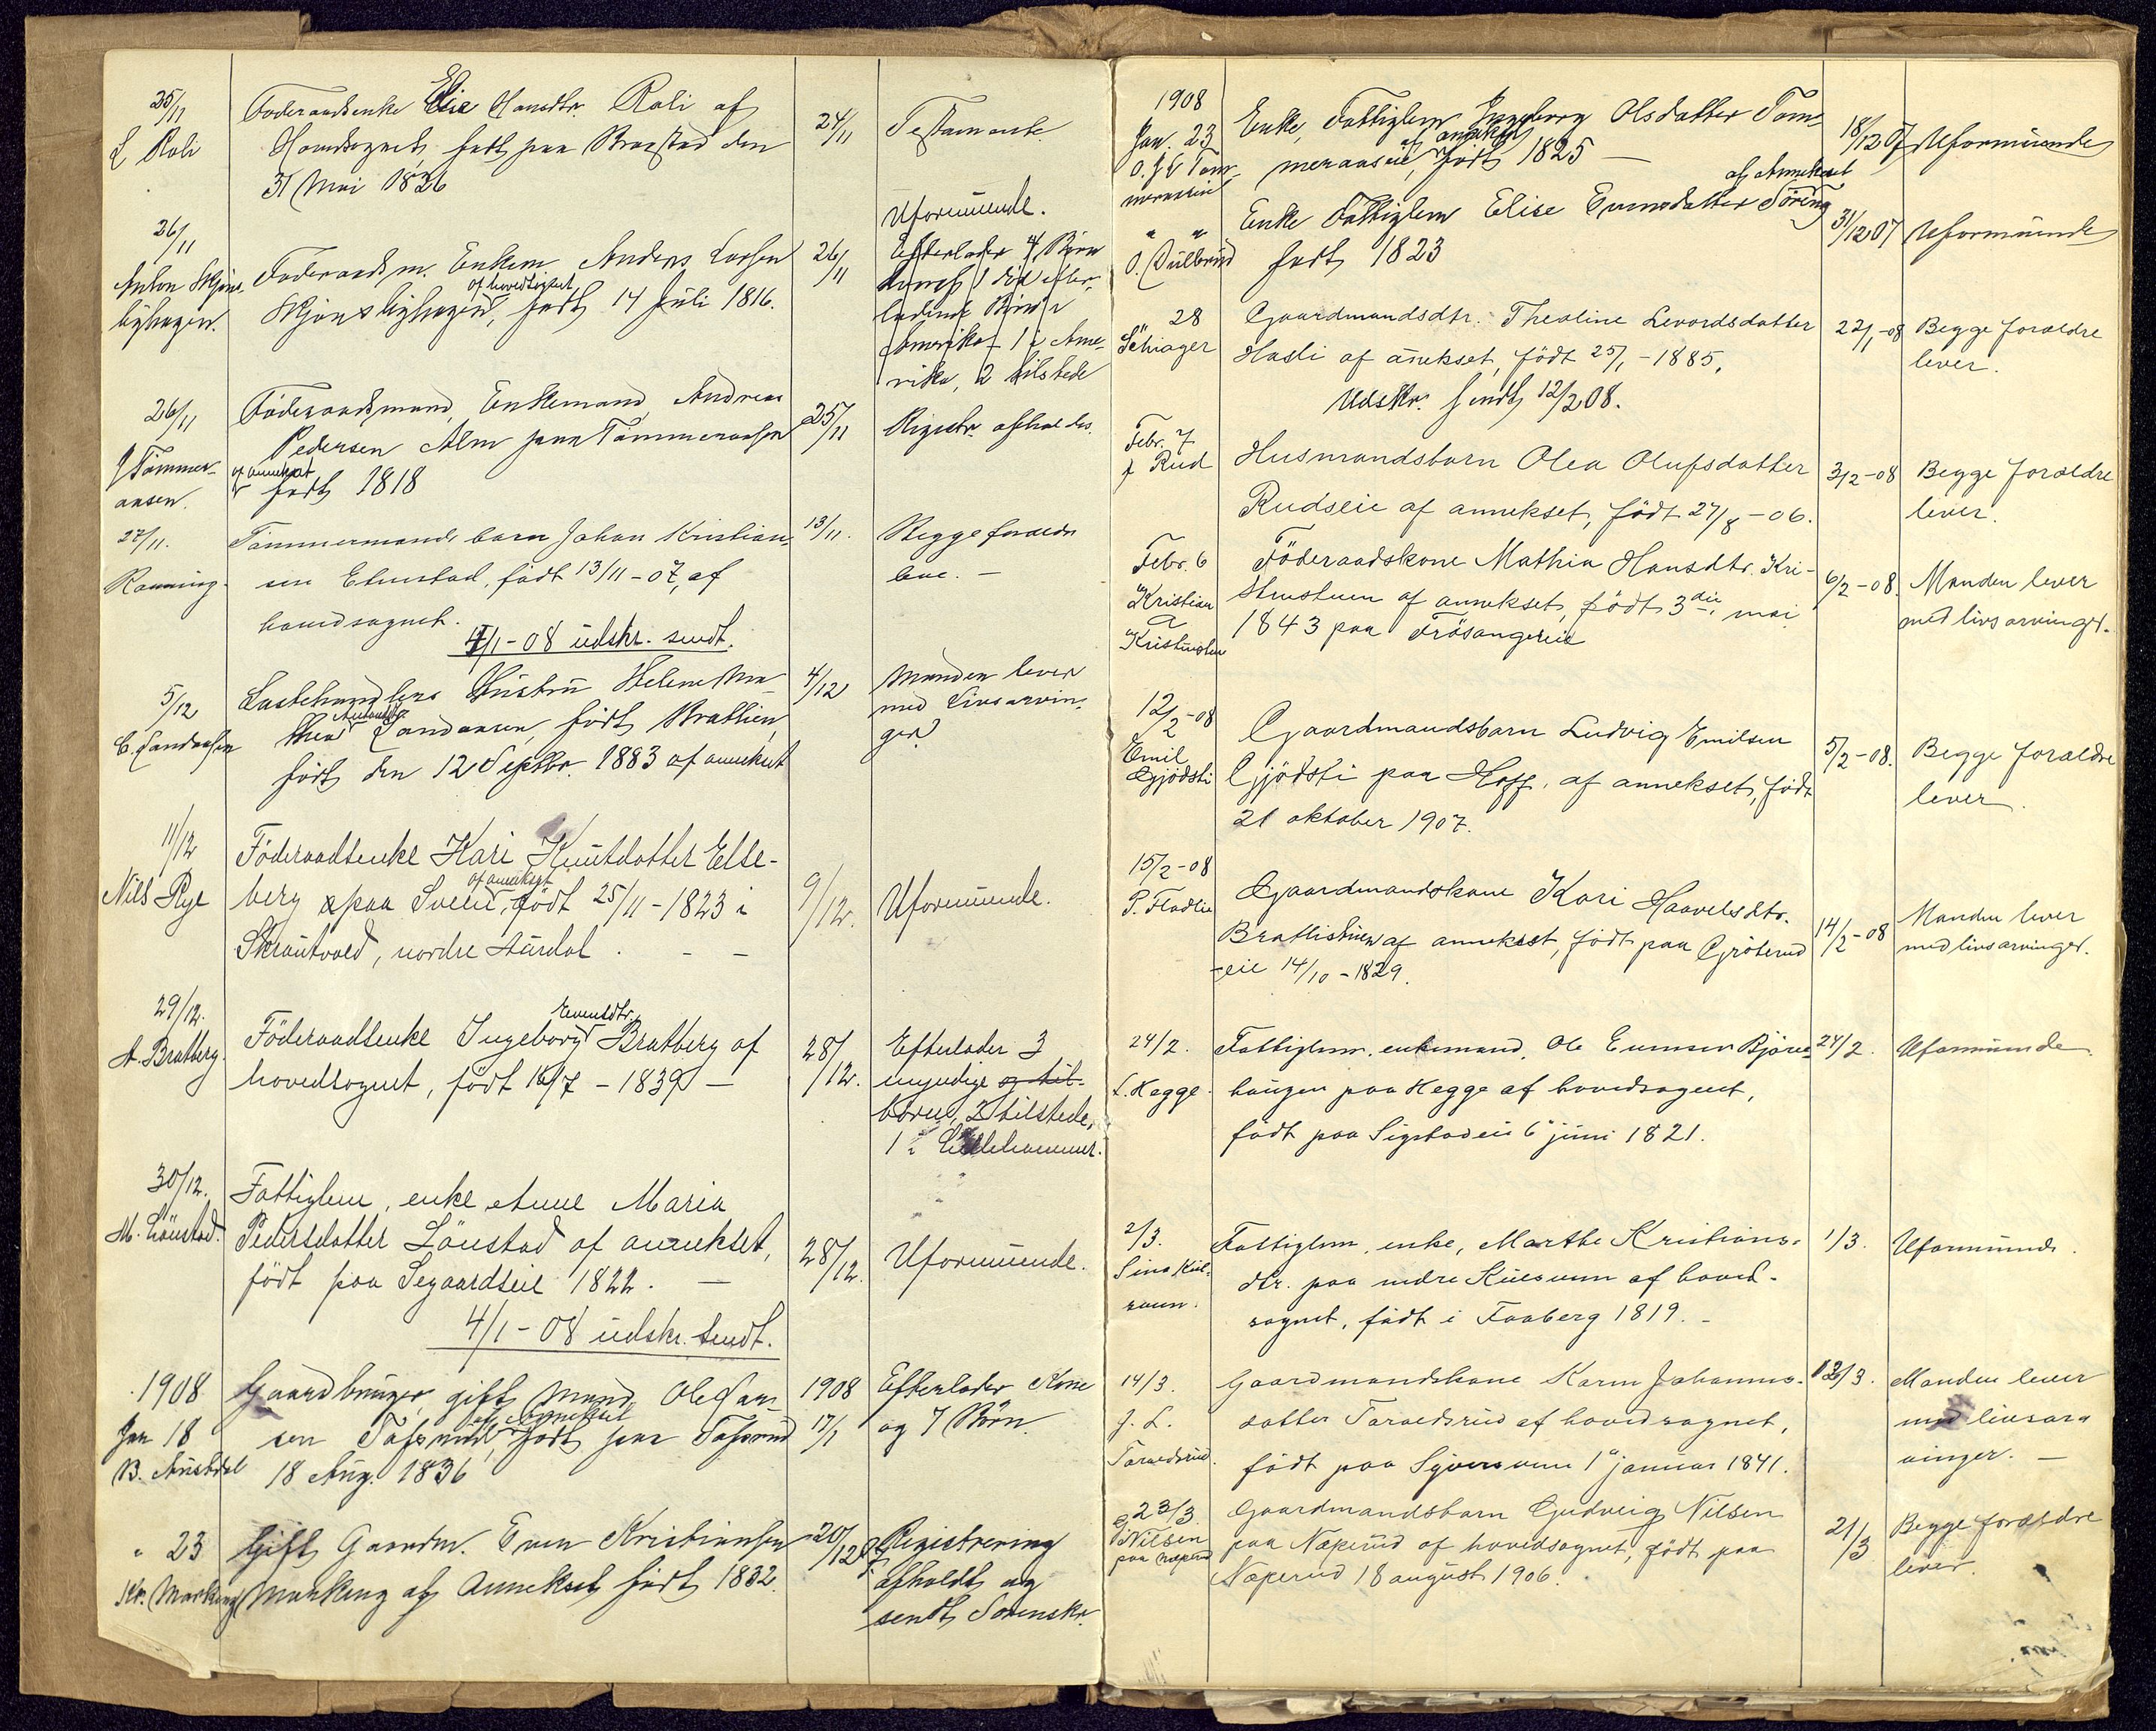 25/11
L Roli
Foderaadsenke Elie Hansdtr. Roli af
Hovedsognet, født paa Braastad den
31 Mai 1826
24/11
Testamente.
26/11
Anton Skjøns-
byhagen.
Foderaadsm. Enkem. Anders Larsen
af hovedsognet
Skjønsbyhagen, født 14 Juli 1816.
26/11
Uformuende.
Efterlader 4 Børn
hvoraf 1 død efter-
ladende Børn i
Amerika 1 i Ame-
rika, 2 tilstede
26/11
J Tømmer-
aasen.
Föderaadsmand, Enkemand Andreas
Pedersen Alm paa Tømmeraasen
af annekset
født 1818
25/11
Registr. afholdes.
27/11.
Rønning.
Tømmermands barn Johan Kristian-
sen Elmstad, födt 13/11-07, af
hovedsognet.
4/1-08 üdskr. sendt.
13/11.
Begge forældre
leve. —
5/12
C. Landaasen
Lastehandlers Hüstrü Helene Ma-
thea Landaasen, født Brathien,
født den 12 Septbr. 1883 af annekset
4/12
Manden lever
med Livsarvin-
ger.
11/12
Nils Rye
Föderaadsenke Kari Knütdatter Else-
af annekset
berg paa Sveen, født 25/11-1823 i
Skrautvold, nordre Aürdal. - -
9/12.
Uformüende.
29/12.
A. Bratberg.
Evensdtr.
Föderaadsenke Ingeborg Bratberg af
hovedsognet, født 16/7 - 1839 —
28/12.
Efterlader 3
myndige og til-
børn, 2 tilstede,
1 i Lillehammer.
30/12.
M. Lönstad.
Fattiglem, enke Anne Maria
Pedersdatter Lönstad af annekset,
födt paa Segaardseie 1822. —
4/1-08 üdskr. sendt.
28/12.
Uformüende.
1908
Jan 18
B. Aüstdal
Gaardbrüger, gift Mand, Ole Lar-
af Annekset
sen Tafsrud, født paa Tafsrud
18 Aüg. 1836
1908
17/1
Efterlader Kone
og 7 Børn.
" 23
Kr. Morking
Gift Gaardm. Even Kristiansen
Morking af Annekset født 1832.
20/12 07
Registrering
afholdt og
sendt Sorenskr.
1908
Jan. 23
O. J. Tøm-
meraaseie
Enke, Fattiglem Ingeborg Olsdatter Tøm-
af annekset
meraaseie, født 1825 —
18/12 07
Uformüende
" "
O. Bülbrüd
af Annekset
Enke Fattiglem Elise Evensdatter Föring
født 1823
31/12 07
Uformüende
28
Schiager
Gaardmandsdtr. Theoline Levordsdatter
Hasli af anekset, født 25/1 - 1885.
Udskr. sendt 12/2 08.
22/1-08
Begge forældre
lever.
Febr. 7
J Rud
Husmandsbarn Olea Olufsdatter
Rudseie af annekset, født 27/8 - 06.
3/2-08
Begge forældre
lever.
Febr. 6
Kristian
Kristinstuen
Föderaadskone Mathia Hansdtr. Kri-
stinstuen af annekset, født 3die mai
1843 paa Frösangereie
6/2-08.
Manden lever
med livsarvinger.
12/2-08
Emil
Gjödsti
Gaardmandsbarn Ludvig Emilsen
Gjödsti paa Hoff, af annekset, født
21 oktober 1907.
5/2-08.
Begge forældre
lever.
15/2-08
P. Fladlie
Gaardmandskone Kari Haavelsdtr.
Bratlistuen af annekset, født paa Gröterud
-eie 14/10-1829.
14/2-08
Manden lever
med livsarvinger.
24/2.
L. Hegge.
Fattiglem. enkemand. Ole Evensen Bjöne-
haugen paa Hegge af hovedsognet,
født paa Sigstadeie 6te juni 1821.
24/2.
Uformüende
2/3.
Sina Kül-
svem.
Fattiglem, enke, Marthe Kristians-
dtr. paa nedre Külsvem af hoved-
sognet, født i Faaberg 1819. -
1/3.
Uformüende.
14/3.
J. L.
Taraldsrud.
Gaardmandskone Karen Johannes-
datter Taraldsrud af hovedsognet,
født paa Syversveen 1e januar 1841.
13/3.
Manden lever
med livsar-
vinger. —
23/3.
G. Nilsen
paa Næperüd
Gaardmandsbarn Gudveig Nilsen
paa Næperüd af hovedsognet, født paa
Næperüd 18 august 1906.
21/3
Begge forældre
lever.